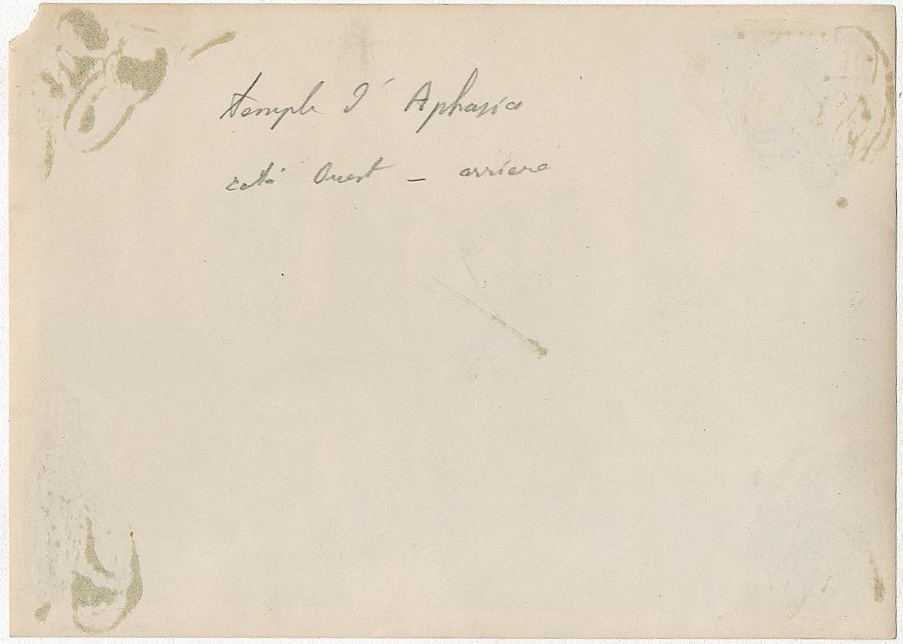 temple d' Aphasia
coté Ouest – arriere